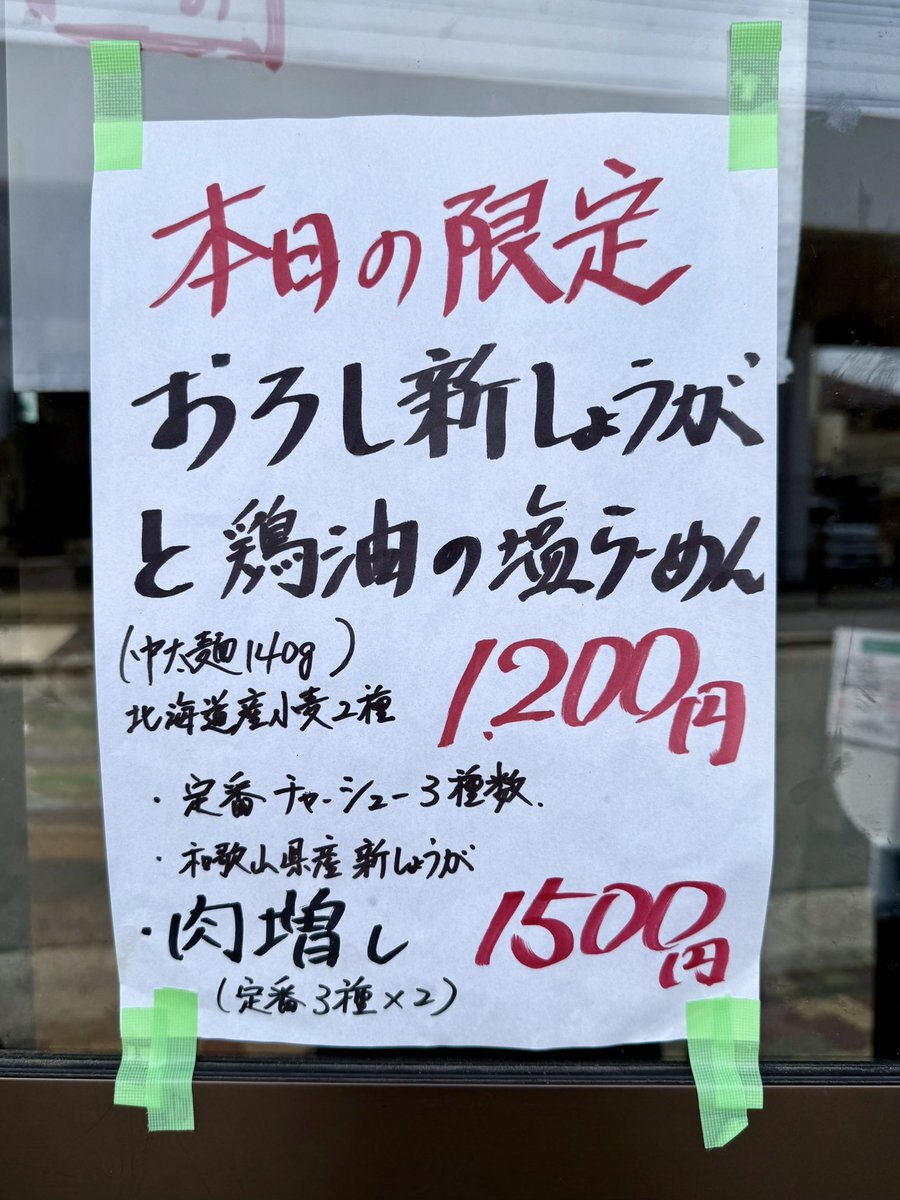 本日の限定
おろし新しょうが
と鶏油の塩らーめん
(中太麺140g)
1,200円
北海道産小麦2種
・定番チャーシュー3種数.
・和歌山県産新しょうが
・肉増し 1500円
(定番3種×2)